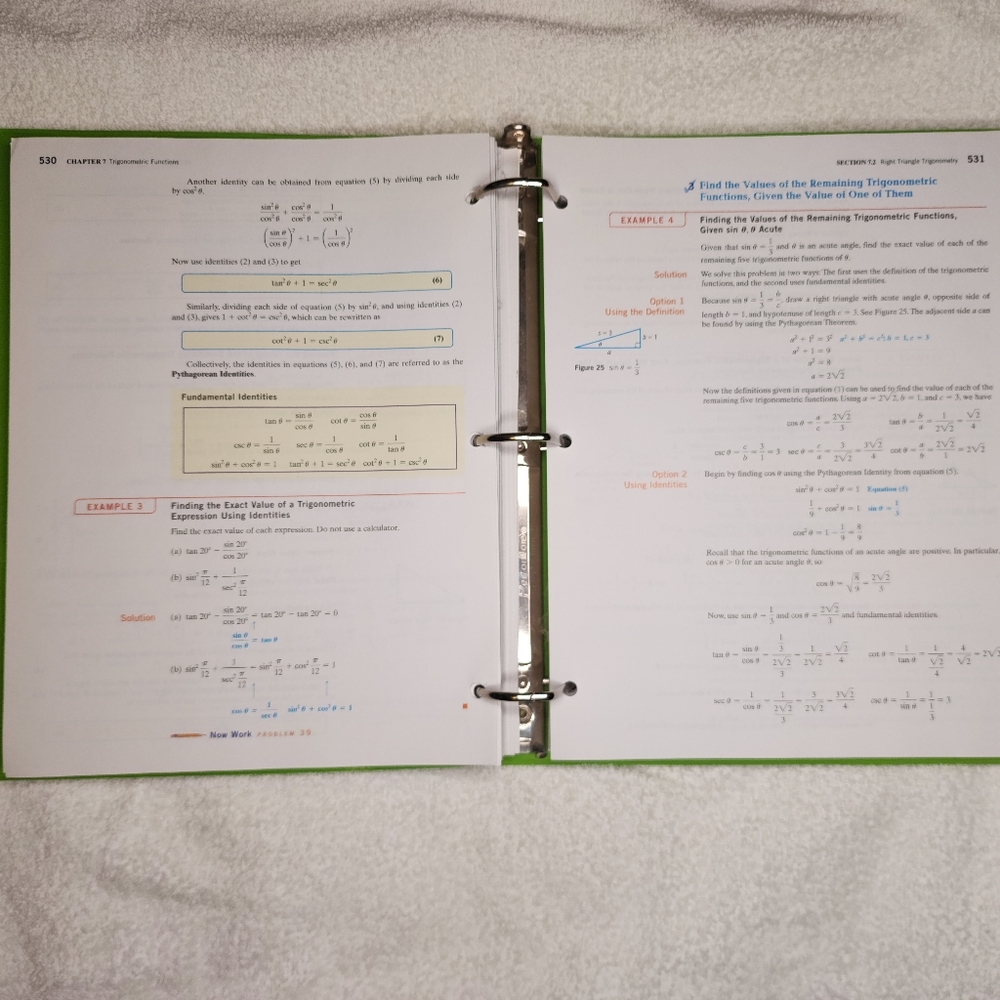 530 CHAPTER 7 Trigonometric Functions
Another identity can be obtained from equation (5) by dividing each side
by cos²θ.
sin²θ/cos²θ + cos²θ/cos²θ = 1/cos²θ
(sin θ/cos θ)² + 1 = (1/cos θ)²
Now use identities (2) and (3) to get
tan²θ + 1 = sec²θ (6)
Similarly, dividing each side of equation (5) by sin²θ, and using identities (2)
and (3), gives 1 + cot²θ = csc²θ, which can be rewritten as
cot²θ + 1 = csc²θ (7)
Collectively, the identities in equations (5), (6), and (7) are referred to as the
Pythagorean Identities.
Fundamental Identities
tan θ = sin θ/cos θ cot θ = cos θ/sin θ
csc θ = 1/sin θ sec θ = 1/cos θ cot θ = 1/tan θ
sin²θ + cos²θ = 1 tan²θ + 1 = sec²θ cot²θ + 1 = csc²θ
EXAMPLE 3 Finding the Exact Value of a Trigonometric
Expression Using Identities
Find the exact value of each expression. Do not use a calculator.
(a) tan 20° − sin 20°/cos 20°
(b) sin² π/12 + 1/sec² π/12
Solution (a) tan 20° − sin 20°/cos 20° = tan 20° − tan 20° = 0
↑
sin θ/cos θ = tan θ
(b) sin² π/12 + 1/sec² π/12 = sin² π/12 + cos² π/12 = 1
↑ ↑
cos θ = 1/sec θ sin²θ + cos²θ = 1
Now Work PROBLEM 35
SECTION 7.2 Right Triangle Trigonometry 531
3 Find the Values of the Remaining Trigonometric
Functions, Given the Value of One of Them
EXAMPLE 4 Finding the Values of the Remaining Trigonometric Functions,
Given sin θ, θ Acute
Given that sin θ = 1/3 and θ is an acute angle, find the exact value of each of the
remaining five trigonometric functions of θ.
Solution We solve this problem in two ways: The first uses the definition of the trigonometric
functions, and the second uses fundamental identities.
Option 1 Because sin θ = 1/3 = b/c, draw a right triangle with acute angle θ, opposite side of
Using the Definition length b = 1, and hypotenuse of length c = 3. See Figure 25. The adjacent side a can
be found by using the Pythagorean Theorem.
c = 3
b = 1
θ
a
Figure 25 sin θ = 1/3
a² + 1² = 3² a² + b² = c²; b = 1, c = 3
a² + 1 = 9
a² = 8
a = 2√2
Now the definitions given in equation (1) can be used to find the value of each of the
remaining five trigonometric functions. Using a = 2√2, b = 1, and c = 3, we have
cos θ = a/c = 2√2/3 tan θ = b/a = 1/2√2 = √2/4
csc θ = c/b = 3/1 = 3 sec θ = c/a = 3/2√2 = 3√2/4 cot θ = a/b = 2√2/1 = 2√2
Option 2 Begin by finding cos θ using the Pythagorean Identity from equation (5).
Using Identities
sin²θ + cos²θ = 1 Equation (5)
1/9 + cos²θ = 1 sin θ = 1/3
cos²θ = 1 − 1/9 = 8/9
Recall that the trigonometric functions of an acute angle are positive. In particular,
cos θ > 0 for an acute angle θ, so
cos θ = √8/9 = 2√2/3
Now, use sin θ = 1/3 and cos θ = 2√2/3 and fundamental identities.
tan θ = sin θ/cos θ = 1/3/2√2/3 = 1/2√2 = √2/4 cot θ = 1/tan θ = 1/√2/4 = 4/√2 = 2√2
sec θ = 1/cos θ = 1/2√2/3 = 3/2√2 = 3√2/4 csc θ = 1/sin θ = 1/1/3 = 3